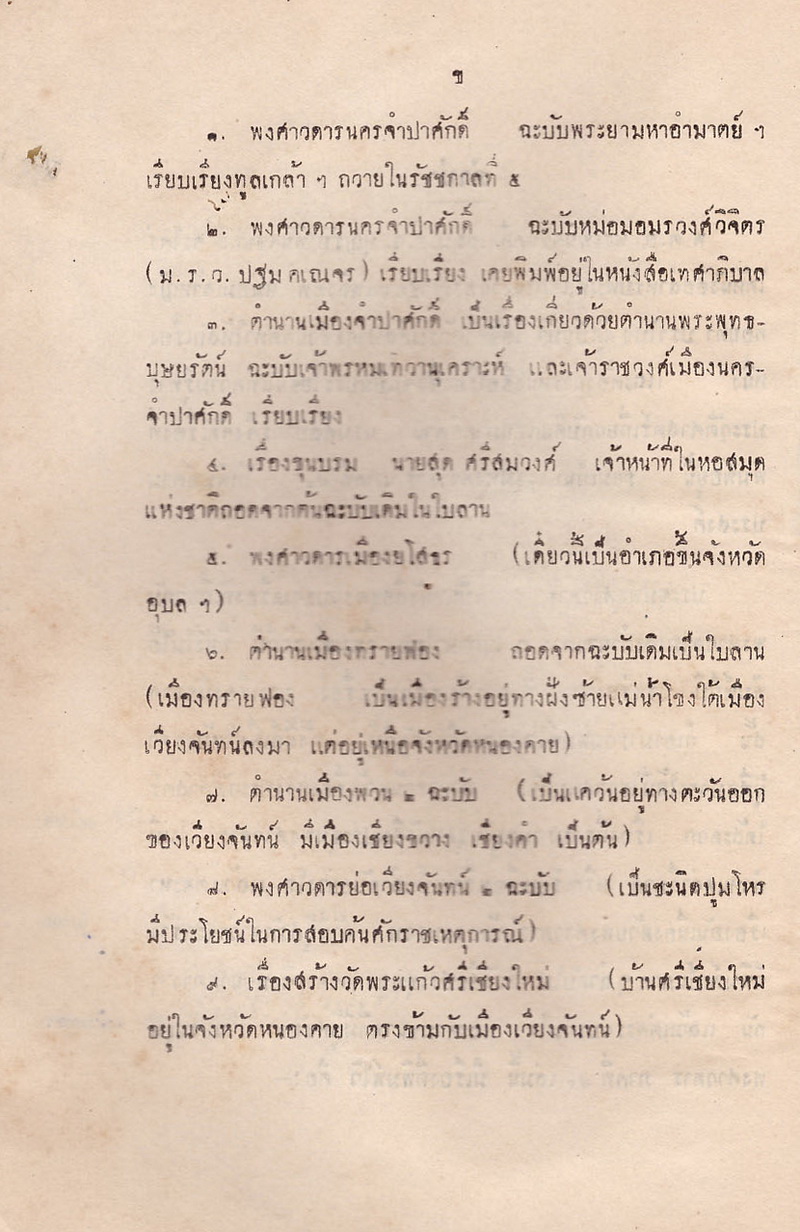 ข
๑. พงศาวดารนครจำปาศักดิ์ ฉะบับพระยามหาอำมาตย์ ฯ
เรียบเรียงทูลเกล้า ฯ ถวายในรัชชกาลที่ ๕
๒. พงศาวดารนครจำปาศักดิ์ ฉะบับหม่อมอมรวงศ์วิจิตร
(ม.ร.ว. ปฐม คเณจร) เรียบเรียง เคยพิมพ์อยู่ในหนังสือเทศาภิบาล
๓. ตำนานเมืองจำปาศักดิ์ เป็นเรื่องเกี่ยวด้วยตำนานพระพุทธ-
บุษยรัตน์ ฉะบับเจ้าพรหมเทวานุเคราะห์ และเจ้าราชวงศ์เมืองนคร-
จำปาศักดิ์ เรียบเรียง
๔. เรื่องขุนบรม นายสุด ศรีสมวงศ์ เจ้าหน้าที่ในหอสมุด
แห่งชาติถอดจากต้นฉะบับเดิมในใบลาน
๕. พงศาวดารเมืองยโสธร (เดี๋ยวนี้เป็นอำเภอขึ้นจังหวัด
อุบล ฯ)
๖. ตำนานเมืองทรายฟอง ถอดจากฉะบับเดิมเป็นใบลาน
(เมืองทรายฟอง เป็นเมืองร้างอยู่ทางฝั่งซ้ายแม่น้ำโขงใต้เมือง
เวียงจันทน์ลงมา แต่อยู่เหนือจังหวัดหนองคาย)
๗. ตำนานเมืองพวน ๒ ฉะบับ (เป็นแคว้นอยู่ทางตะวันออก
ของเวียงจันทน์ มีเมืองเชียงขวาง เชียงคำ เป็นต้น)
๘. พงศาวดารย่อเวียงจันทน์ ๒ ฉะบับ (เป็นชะนิดปูมโหร
มีประโยชน์ในการสอบค้นศักราชเหตุการณ์)
๙. เรื่องสร้างวัดพระแก้วศรีเชียงใหม่ (บ้านศรีเชียงใหม่
อยู่ในจังหวัดหนองคาย ตรงข้ามกับเมืองเวียงจันทน์)